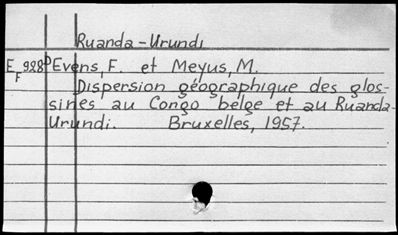 Ruanda-Urundi
EF 928D Evens, F. et Meyus, M.
Dispersion géographique des glos-
sines au Congo belge et au Ruanda-
Urundi. Bruxelles, 1957.